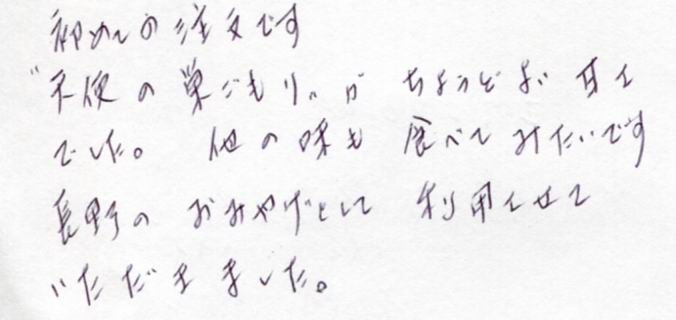 初めての注文です
"天使の巣ごもり〟が ちょうどよい 甘さ
でした。 他の味も 食べてみたいです
長野の おみやげとして 利用させて
いただきました。